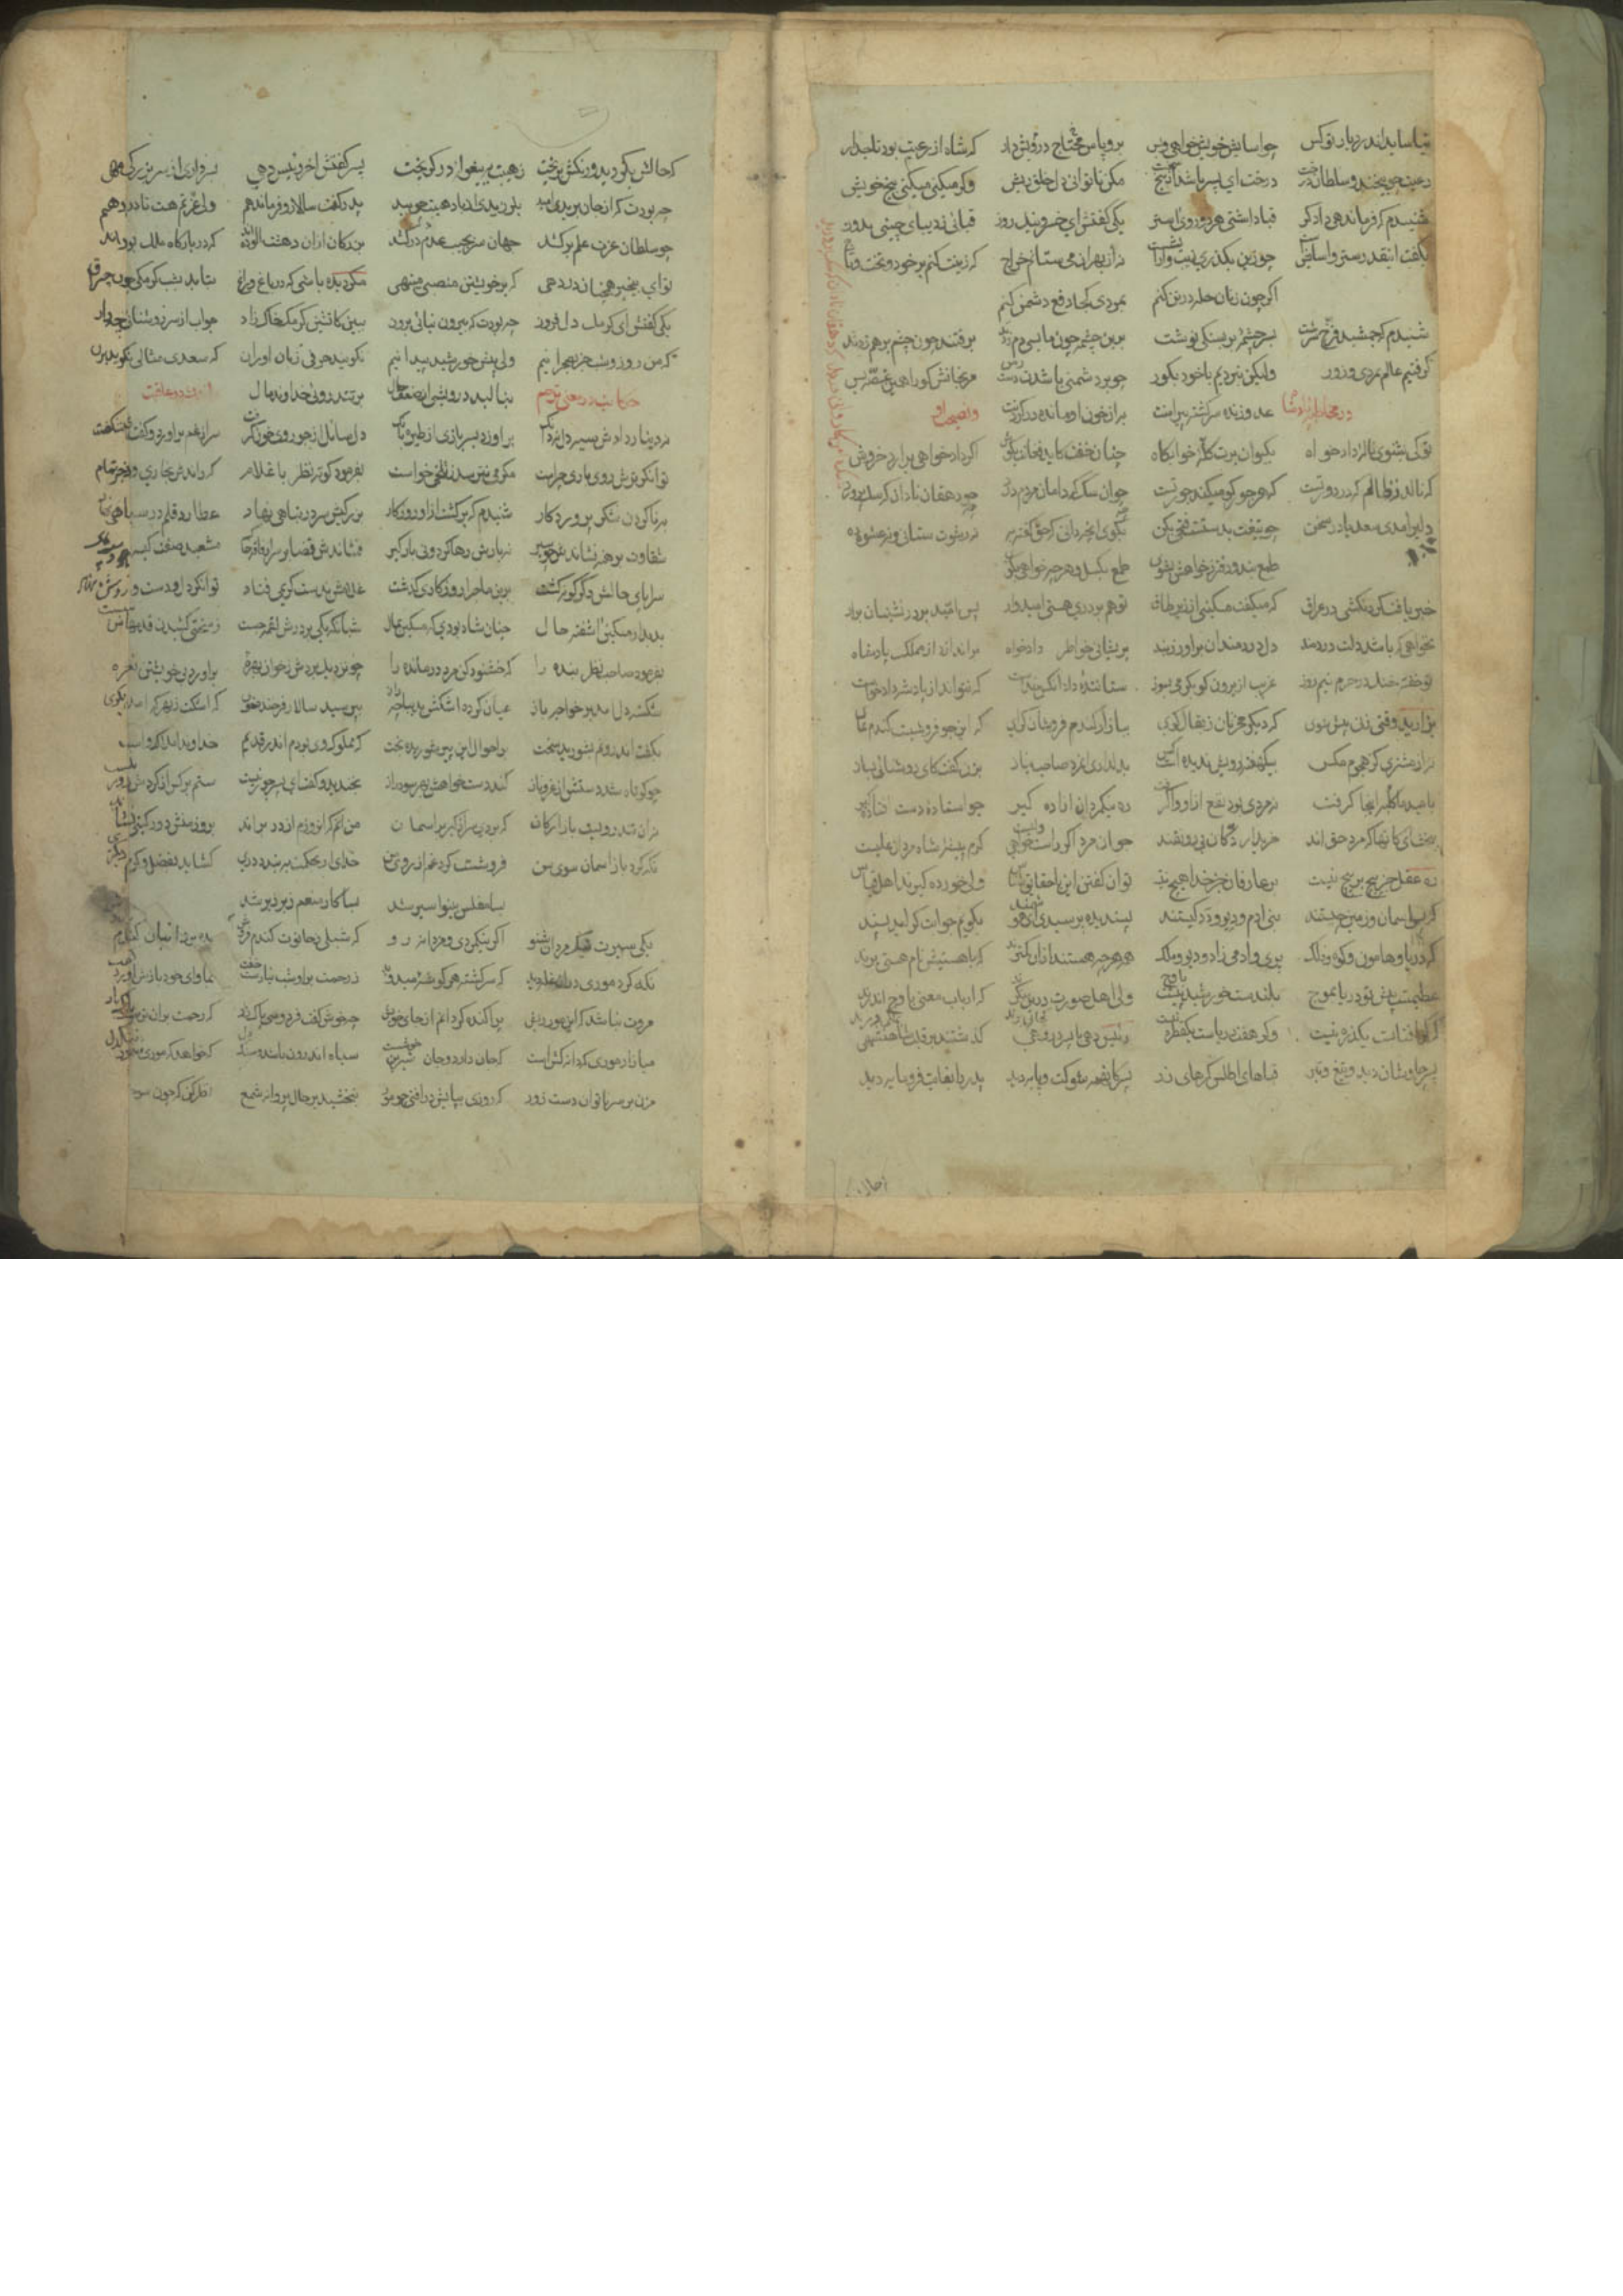 نیاساید اندر دیار تو کس چو آسایش خویش خواهی و بس برو پاس محتاج درویش دار که شاه از رعیت بود تاجدار
رعیت چو بیخند و سلطان درخت درخت ای پسر باشد از بیخ سخت مکن تا توانی دل خلق ریش وگر میکنی میکنی بیخ خویش
شنیدم که فرماندهی دادگر قبا داشتی هر دو روی آستر یکی گفتش ای خسرو نیک روز قبائی ز دیبای چینی بدوز
بگفت اینقدر ستر و آسایش چو زین بگذری زیب و آرایش نه از بهر آن می ستانم خراج که زینت کنم بر خود و تخت و تاج
اگر چون زنان حله در تن کنم بمردی کجا دفع دشمن کنم
شنیدم که جمشید فرخ سرشت بسرچشمه بر بسنگی نوشت برین چشمه چون ما بسی دم زدند برفتند چون چشم برهم زدند
گرفتیم عالم بمردی و زور ولیکن نبردیم با خود بگور چو بر دشمنی باشدت دسترس مرنجانش کورا همین غصه بس
عدو زنده سرگشته پیرامنت به از خون او مانده در گردنت
تو کی بشنوی ناله دادخواه بکیوان برت کله خوابگاه چنان خفت کاید فغان بگوش اگر دادخواهی برآرد خروش
که نالد ز ظالم که در دور تست که هر جور کو میکند جور تست
دلیر آمدی سعدیا در سخن چو تیغت بدست فتحی بکن بگوی آنچه دانی که حق گفته به نه رشوت ستانی و نه عشوه ده
طمع بند و دفتر ز حکمت بشوی طمع بگسل و هر چه خواهی بگوی
خبر یافت گردنکشی در عراق که میگفت مسکینی از زیر طاق تو هم بر دری هستی امیدوار پس امید بر در نشینان برآر
نخواهی که باشد دلت دردمند دل دردمندان برآور ز بند پریشانی خاطر دادخواه براندازد از مملکت پادشاه
تو خفته خنک در حرم نیم روز غریب از برون گو بگرما بسوز ستاننده داد آنکس خداست که نتواند از پادشه داد خواست
بزارید وقتی زنی پیش شوی که دیگر مخر نان ز بقال کوی ببازار گندم فروشان گرای که این جو فروشست گندم نمای
نه از مشتری کز هجوم مگس بیکهفته رویش ندیده است کس بدلداری آن مرد صاحب نیاز بزن گفت کای روشنائی بساز
بامید ما کلبه اینجا گرفت نه مردی بود نفع ازو وا گرفت ره نیکمردان آزاده گیر چو استاده دست افتاده گیر
ببخشای کانها که مرد حقند خریدار دکان بی رونقند جوانمرد اگر راست خواهی ولیست کرم پیشه شاه مردان علیست
ره عقل جز پیچ بر پیچ نیست بر عارفان جز خدا هیچ نیست توان گفتن این با حقایق شناس ولی خرده گیرند اهل قیاس
که پس آسمان و زمین چیستند بنی آدم و دیو و دد کیستند پسندیده پرسیدی ای هوشمند بگویم جوابت گر آید پسند
که دریا و هامون و کوه و فلک پری و آدمی زاد و دیو و ملک همه هر چه هستند از آن کمترند که با هستیش نام هستی برند
عظیمست پیش تو دریا بموج بلندست خورشید تابان باوج ولی اهل صورت کجا پی برند که ارباب معنی بملکی درند
که گر آفتابست یک ذره نیست وگر هفت دریاست یک قطره نیست رئیس دهی با پسر در رهی گذشتند بر قلب شاهنشهی
پسر چاوشان دید و تیغ و تبر قباهای اطلس کمرهای زر پسر کان همه شوکت و پایه دید پدر را بغایت فرومایه دید
که حالش بگردید و رنگش بریخت ز هیبت به پیغوله درگریخت پسر گفتش آخر رئیس دهی بسرداری از سر بزرگان مهی
چه بودت که از جان بریدی امید بلرزیدی از باد هیبت چو بید پدر گفت سالار و فرماندهم ولی عزتم هست تا در دهم
چو سلطان عزت علم برکشد جهان سر بجیب عدم درکشد بزرگان از آن دهشت آلوده اند که در بارگاه ملک بوده اند
تو ای بیخبر همچنان در دهی که بر خویشتن منصبی مینهی مگر دیده باشی که در باغ و راغ بتابد بشب کرمکی چون چراغ
یکی گفتش ای کرمک دل فروز چه بودت که بیرون نیائی بروز ببین کاتشین کرمک خاک زاد جواب از سر روشنائی چه داد
که من روز و شب جز بصحرا نیم ولی پیش خورشید پیدا نیم نگویند حرفی زبان آوران که سعدی مثالی نگوید بر آن
بنالید درویشی از ضعف حال بر تندروئی خداوند مال
نه دینار دادش سیه دل نه دانگ برآورد بسر باری از طیره بانگ دل سائل از جور او خون گرفت سر از غم برآورد و گفت ای شگفت
توانگر ترش روی باری چراست مگر می نترسد ز تلخی خواست بفرمود کوته نظر تا غلام که راندش بخواری و زجر تمام
بناکردن شکر پروردگار شنیدم که برگشت ازو روزگار بزرگیش سر در تباهی نهاد عطارد قلم در سیاهی نهاد
شقاوت برهنه نشاندش چو سیر نه بارش رها کرد و نی بارگیر فشاندش قضا بر سر از فاقه خاک مشعبد صفت کیسه و دست پاک
سراپای حالش دگرگونه گشت برین ماجرا روزگاری گذشت غلامش بدست کریمی فتاد توانگر دل و دست و روشن نهاد
بدیدار مسکین آشفته حال چنان شاد بودی که مسکین بمال شبانگه یکی بر درش لقمه جست ز سختی کشیدن قدمهاش سست
بفرمود صاحب نظر بنده را که خشنود کن مرد درمانده را چو نزدیک بردش ز خوان بهره برآورد بی خویشتن نعره
شکسته دل آمد بر خواجه باز عیان کرده اشکش بدیباچه راز بپرسید سالار فرخنده خوی که اشکت ز جور که آمد بروی
بگفت اندرونم بشورید سخت بر احوال این پیر شوریده بخت که مملوک وی بودم اندر قدیم خداوند املاک و اسباب
چو کوتاه شد دستش از عز و ناز کند دست خواهش بدرها دراز بخندید و گفت ای پسر جور نیست ستم بر کس از گردش دور نیست
نه آن تندرویست بازارگان که بردی سر از کبر بر آسمان من آنم که آنروزم از در براند بروز منش دور گیتی نشاند
نگه کرد باز آسمان سوی من فروشست گرد غم از روی من خدای ار بحکمت ببندد دری گشاید بفضل و کرم دیگری
بسا مفلس بینوا سیر شد بسا کار منعم زبر زیر شد
یکی سیرت نیکمردان شنو اگر نیکمردی و مردانه رو که شبلی ز حانوت گندم فروش بده برد انبان گندم بدوش
نگه کرد موری در آن غله دید که سرگشته هر گوشه میدوید ز رحمت برو شب نیارست خفت بمأوای خود بازش آورد و گفت
مروت نباشد که این مور ریش پراکنده گردانم از جای خویش چه خوش گفت فردوسی پاک زاد که رحمت بر آن تربت پاک باد
میازار موری که دانه کش است که جان دارد و جان شیرین خوش است سیاه اندرون باشد و سنگ دل که خواهد که موری شود تنگ دل
مزن بر سر ناتوان دست زور که روزی بپایش درافتی چو مور نبخشید بر حال پروانه شمع نگه کن که چون سوخت